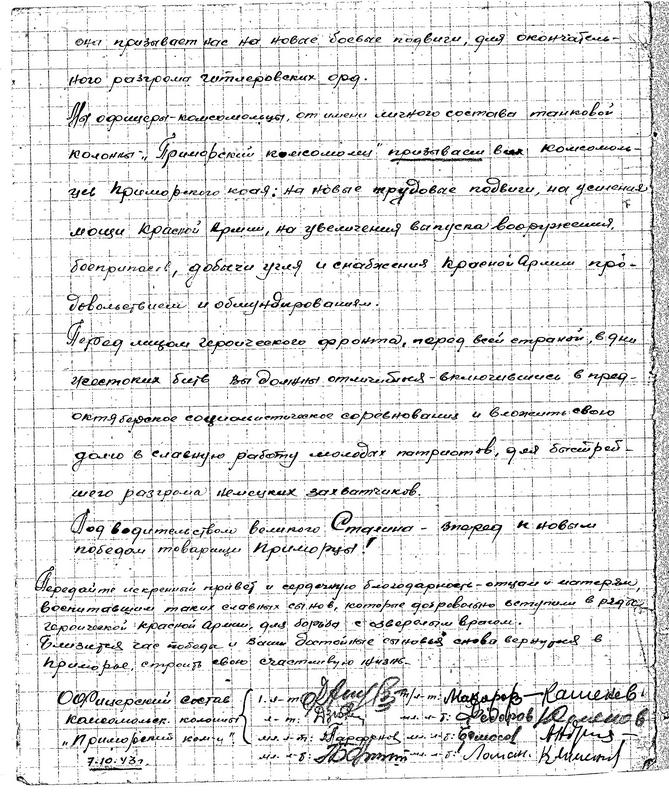 она призывает нас на новые боевые подвиги, для окончатель-
ного разгрома гитлеровских орд.
Мы офицеры-комсомольцы, от имени личного состава танковой
колонны „Приморский комсомолец" призываем всех комсомоль-
цев Приморского края: на новые трудовые подвиги, на усиления
мощи Красной Армии, на увеличения выпуска вооружения,
боеприпасов, добычи угля и снабжения Красной Армии про-
довольствием и обмундированием.
Перед лицом героического фронта, перед всей страной, в дни
жестоких битв вы должны отличиться - включившись в пред-
октябрьское социалистическое соревнования и вложить свою
долю в славную работу молодых патриотов, для быстрей-
шего разгрома немецких захватчиков.
Под водительством великого Сталина - вперед к новым
победам товарищи Приморцы!
Передайте искренний привет и сердечную благодарность - отцам и матерям,
воспитавшим таких славных сынов, которые добровольно вступили в ряды
героической Красной Армии, для борьбы с озверелым врагом.
Близится час победа и Ваши достойные сыновья снова вернутся в
Приморье, строить свою счастливую жизнь.
Офицерский состав л-т: мл. л-т: Макаров - Кашенев.
комсомольск. колонны л-т: мл. л-т: Федоров
„Приморский ком-ц" мл. л-т: Парфенов мл. л-т:
7.10.43г. мл. л-т: мл. л-т: Ломан.